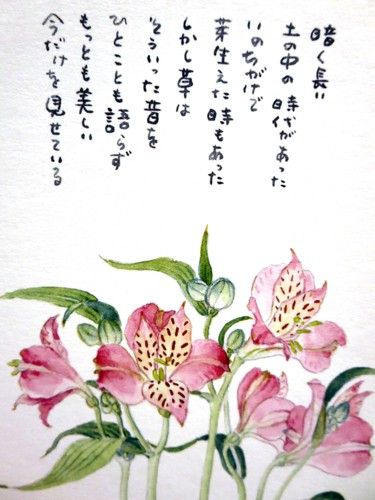 暗く長い
土の中の時代があった
いのちがけで
芽生えた時もあった
しかし草は
そういった昔を
ひとことも語らず
もっとも美しい
今だけを見せている